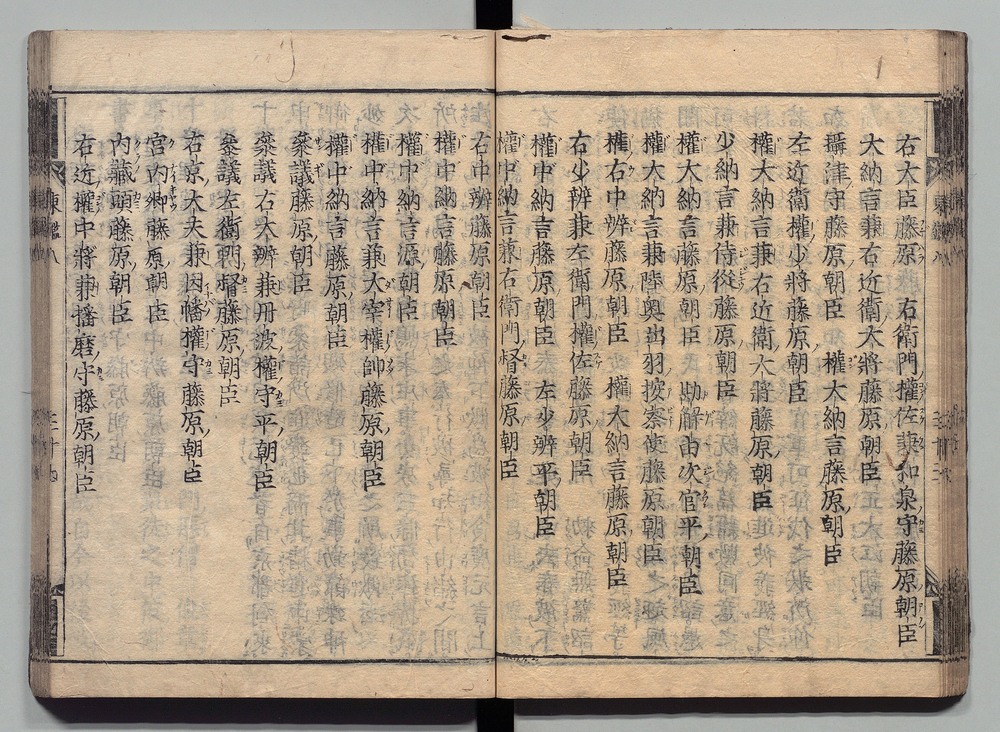 右大臣藤原　右衛門權佐兼和泉守藤原朝臣
大納言兼右近衛大將藤原朝臣
攝津守藤原朝臣　權大納言藤原朝臣
左近衛權少將藤原朝臣
權大納言兼右近衛大將藤原朝臣
少納言兼侍從藤原朝臣
權大納言藤原朝臣　勘解由次官平朝臣
權大納言兼陸奥出羽按察使藤原朝臣
權右中辨藤原朝臣　權大納言藤原朝臣
右少辨兼左衛門權佐藤原朝臣
權中納言藤原朝臣　左少辨平朝臣
權中納言兼右衛門督藤原朝臣
右中辨藤原朝臣
權中納言藤原朝臣
權中納言源朝臣
權中納言兼大宰權帥藤原朝臣
權中納言藤原朝臣
參議藤原朝臣
參議右大辨兼丹波權守平朝臣
參議左衛門督藤原朝臣
右京大夫兼因幡權守藤原朝臣
宮内卿藤原朝臣
内藏頭藤原朝臣
右近權中將兼播磨守藤原朝臣
東鑑八
三十四